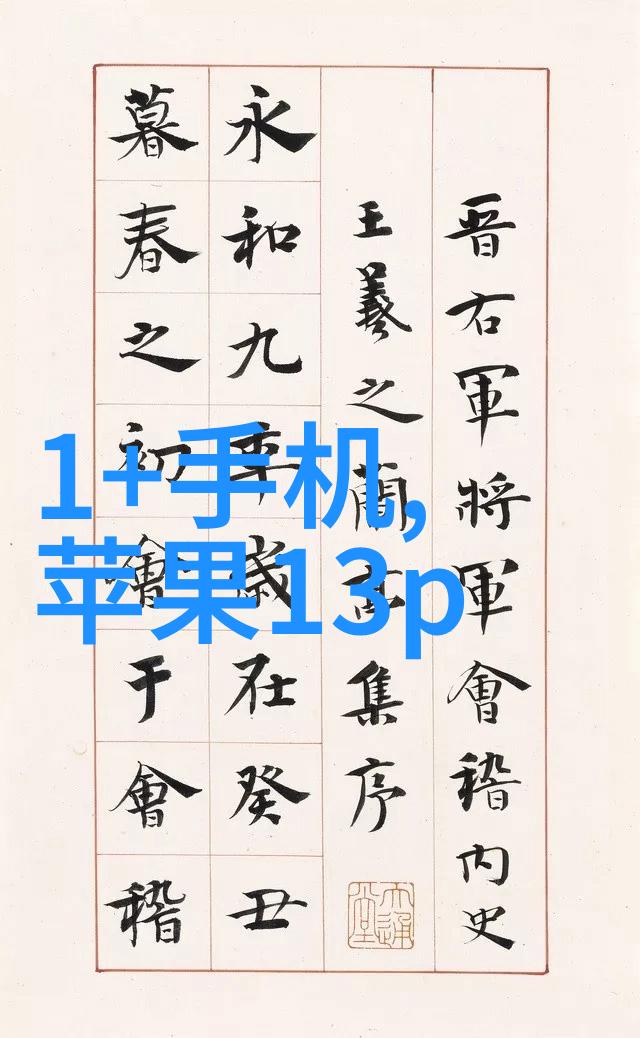 晋右軍將軍會稽内史
王羲之蘭亭集序
永和九年歲在癸丑
暮春之初會于會稽
1+手机,
苹果13p